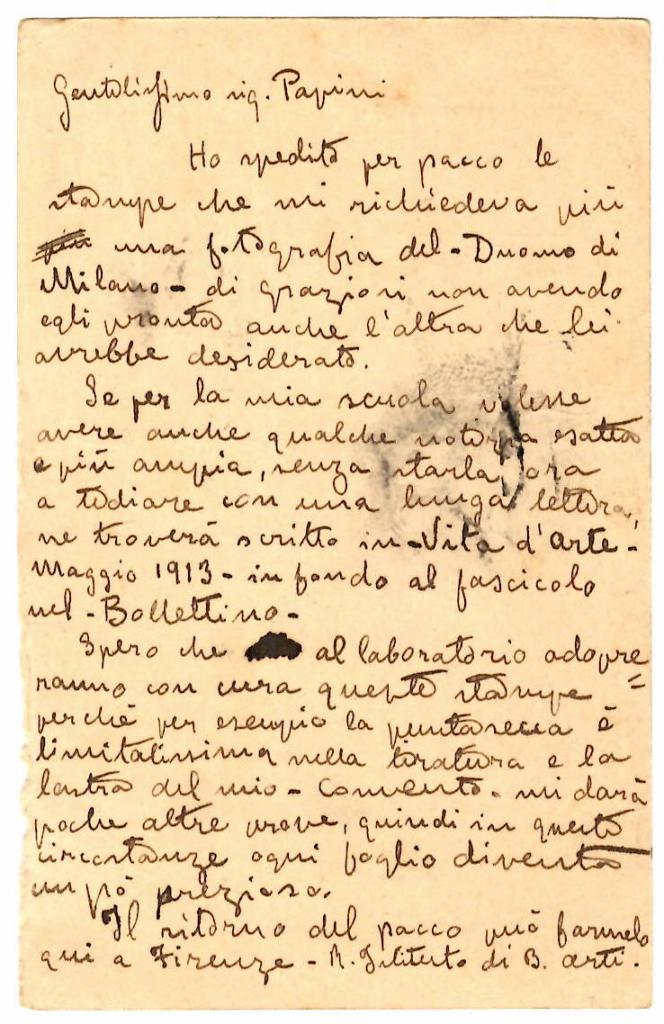 Gentilissimo sig. Papini
Ho spedito per pacco le
stampe che mi richiedeva più
una fotografia del - Duomo di
Milano - di Graziosi non avendo
egli pronta anche l'altra che lei
avrebbe desiderato.
Se per la mia scuola volesse
avere anche qualche notizia esatta
e più ampia, senza starla, ora
a tediare con una lunga lettera,
ne troverà scritto in - Vita d'Arte -
Maggio 1913 - in fondo al fascicolo
nel - Bollettino -
Spero che al laboratorio adopre=
ranno con cura queste stampe
perchè per esempio la puntasecca è
limitatissima nella tiratura e la
lastra del mio - Convento - mi darà
poche altre prove, quindi in queste
circostanze ogni foglio diventa
un pò prezioso.
Il ritorno del pacco può farmelo
qui a Firenze - R. Istituto di B. Arti.